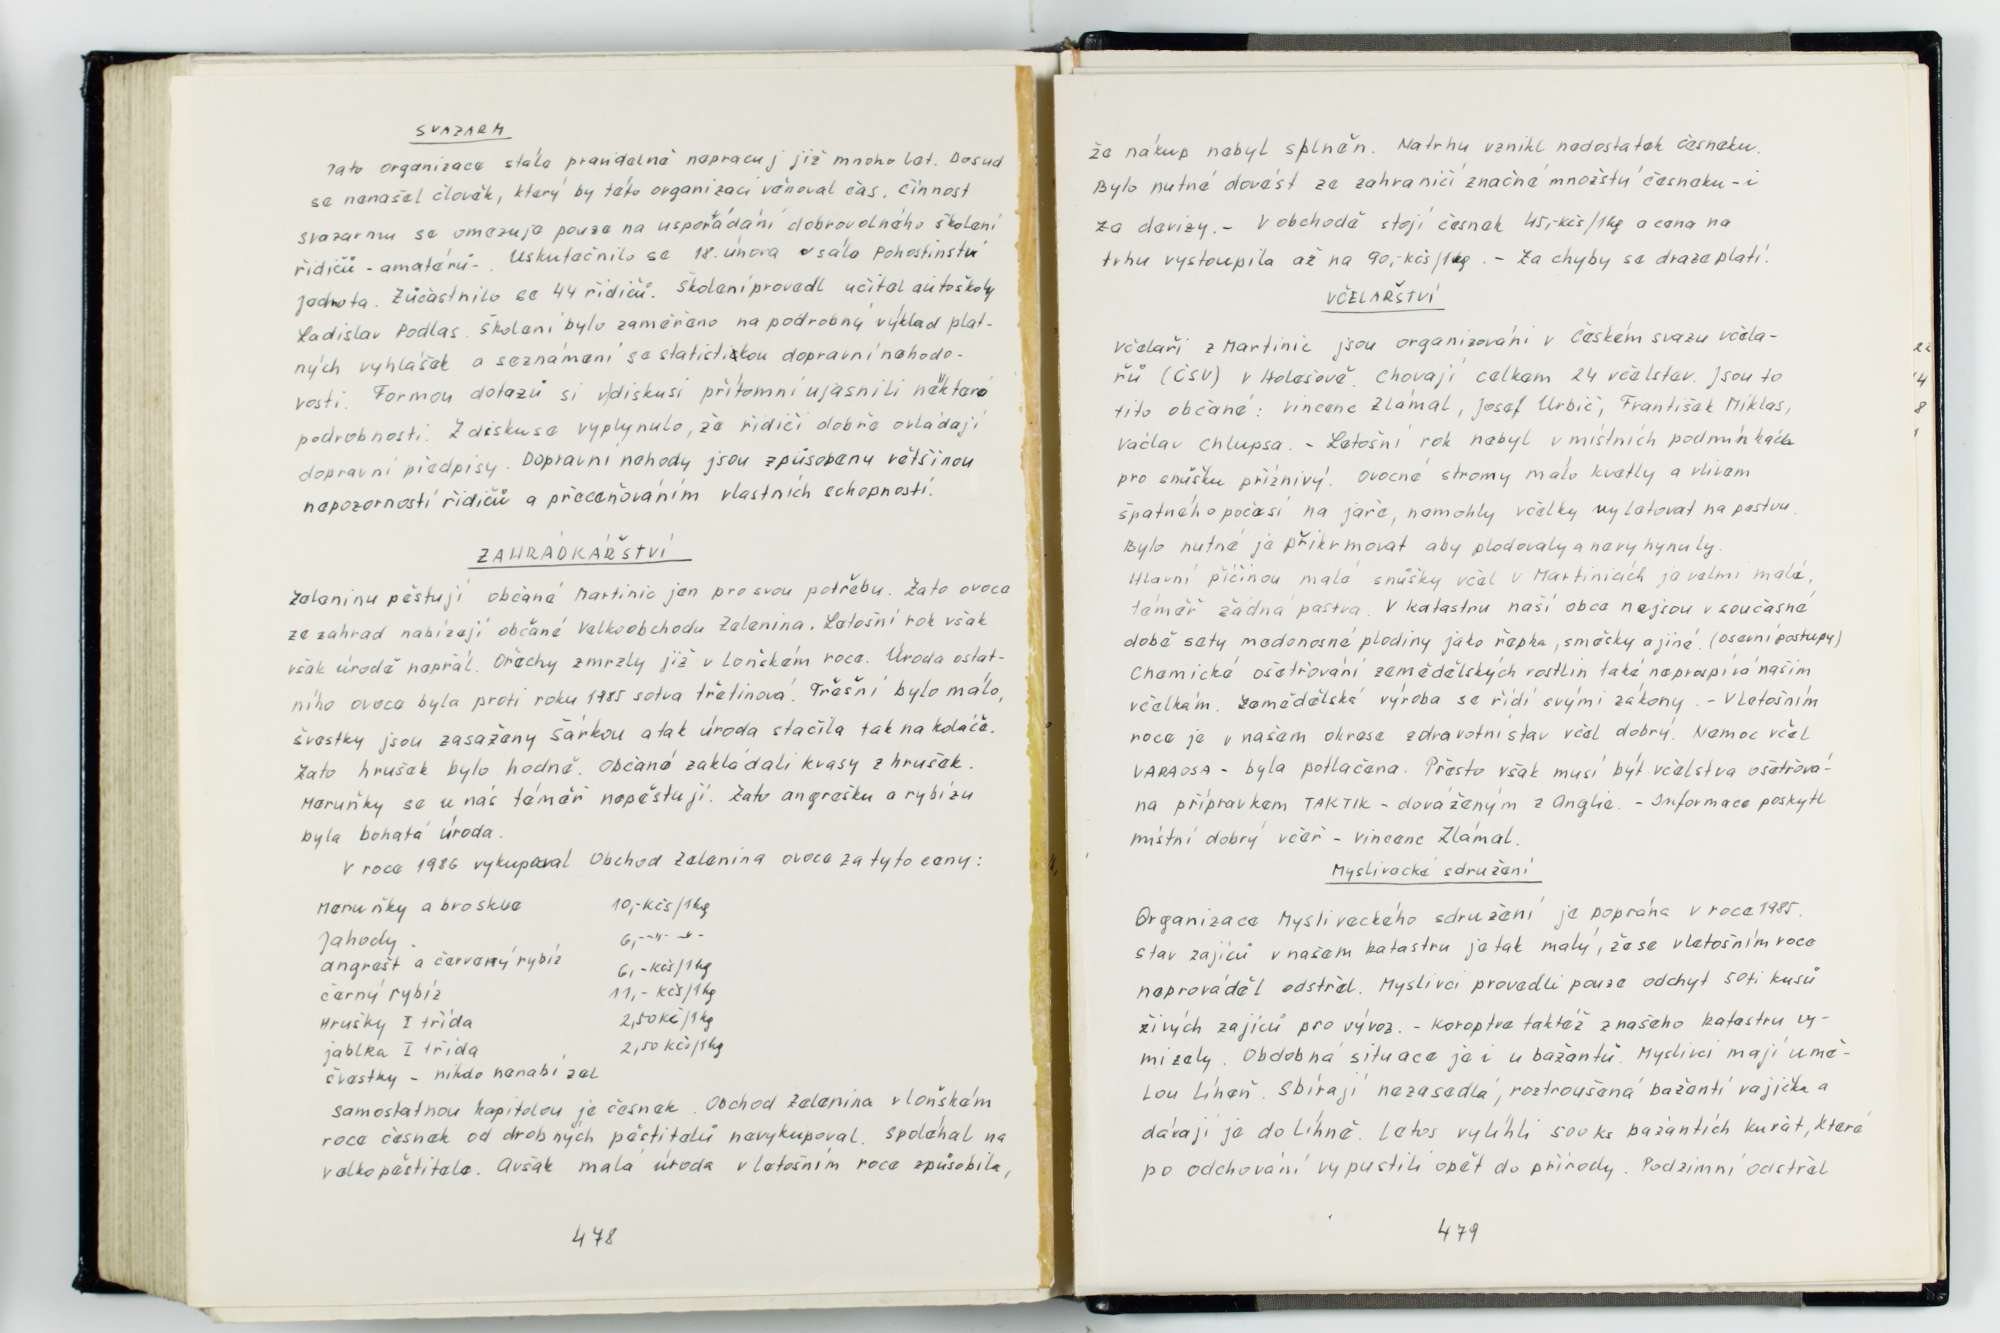 SVAZARM
Tato organizace stále pravidelně nepracuj již mnoho let. Dosud
se nenašel člověk, který by této organizaci věnoval čas. Činnost
Svazarmu se omezuje pouze na uspořádání dobrovolného školení
řidičů - amatérů -. Uskutečnilo se 18. února v sále Pohostinství
Jednota. Zúčastnilo se 44 řidičů. Školení provedl učitel autoškoly
Ladislav Podlas. Školení bylo zaměřeno na podrobný výklad plat-
ných vyhlášek a seznámení se statistikou dopravní nehodo-
vosti. Formou dotazů si v diskusi přítomní ujasnili některé
podrobnosti. Z diskuse vyplynulo, že řidiči dobře ovládají
dopravní předpisy. Dopravní nehody jsou způsobeny většinou
nepozorností řidičů a přeceňováním vlastních schopností.
ZAHRÁDKÁŘSTVÍ
Zeleninu pěstují občané Martinic jen pro svou potřebu. Zato ovoce
ze zahrad nabízejí občané Velkoobchodu Zelenina. Letošní rok však
však úrodě nepřál. Ořechy zmrzly již v loňském roce. Úroda ostat-
ního ovoce byla proti roku 1985 sotva třetinová. Třešní bylo málo,
švestky jsou zasaženy šárkou a tak úroda stačila tak na koláče.
Zato hrušek bylo hodně. Občané zakládali kvasy z hrušek.
Meruňky se u nás téměř nepěstují. Zato angreštu a rybízu
byla bohatá úroda.
V roce 1986 vykupoval Obchod Zelenina ovoce za tyto ceny:
Meruňky a broskve 10,- Kčs/1kg
Jahody. 6,- -"- -"-
angrešt a červený rybíz 6,- Kčs/1kg
černý rybíz 11,- Kčs/1kg
Hrušky I třída 2,50 Kč/1kg
jablka I třída 2,50 Kčs/1kg
švestky - nikdo nenabízel
Samostatnou kapitolou je česnek. Obchod Zelenina v loňském
roce česnek od drobných pěstitelů nevykupoval. Spoléhal na
velkopěstitele. Avšak malá úroda v letošním roce způsobila,
478
že nákup nebyl splněn. Na trhu vznikl nedostatek česneku.
Bylo nutné dovést ze zahraničí značné množství česneku - i
za devizy. - V obchodě stojí česnek 45,- Kčs/1kg a cena na
trhu vystoupila až na 90,- Kčs/1kg. - Za chyby se draze platí.
VČELAŘSTVÍ
Včelaři z Martinic jsou organizováni v Českém svazu včela-
řů (ČSV) v Holešově. Chovají celkem 24 včelstev. Jsou to
tito občané: Vincenc Zlámal, Josef Urbič, František Miklas,
Václav Chlupsa. - Letošní rok nebyl v místních podmínkách
pro snůšku příznivý. Ovocné stromy málo kvetly a vlivem
špatného počasí na jaře, nemohly včelky vylétovat na pastvu.
Bylo nutné je přikrmovat aby plodovaly a nevyhynuly.
Hlavní příčinou malé snůšky včel v Martinicích je velmi malá,
téměř žádná pastva. V katastru naší obce nejsou v současné
době sety medonosné plodiny jako řepka, směsky a jiné. (Osevní postupy)
Chemické ošetřování zemědělských rostlin také neprospívá našim
včelkám. Zemědělská výroba se řídí svými zákony. - V letošním
roce je v našem okrese zdravotní stav včel dobrý. Nemoc včel
VARAOSA - byla potlačena. Přesto však musí být včelstva ošetřová-
na přípravkem TAKTIK - dováženým z Anglie. - Informace poskytl
místní dobrý včeř - Vincenc Zlámal.
Myslivecké sdružení
Organizace Mysliveckého sdružení je popsána v roce 1985.
Stav zajíců v našem katastru je tak malý, že se v letošním roce
neprováděl odstřel. Myslivci provedli pouze odchyt 50ti kusů
živých zajíců pro vývoz. - Koroptve taktéž z našeho katastru vy-
mizely. Obdobná situace je i u bažantů. Myslivci mají umě-
lou líheň. Sbírají nezasedlá, roztroušená bažantí vajíčka a
dávají je do líhně. Letos vylíhli 500 ks bažantích kuřat, které
po odchování vypustili opět do přírody. Podzimní odstřel
479